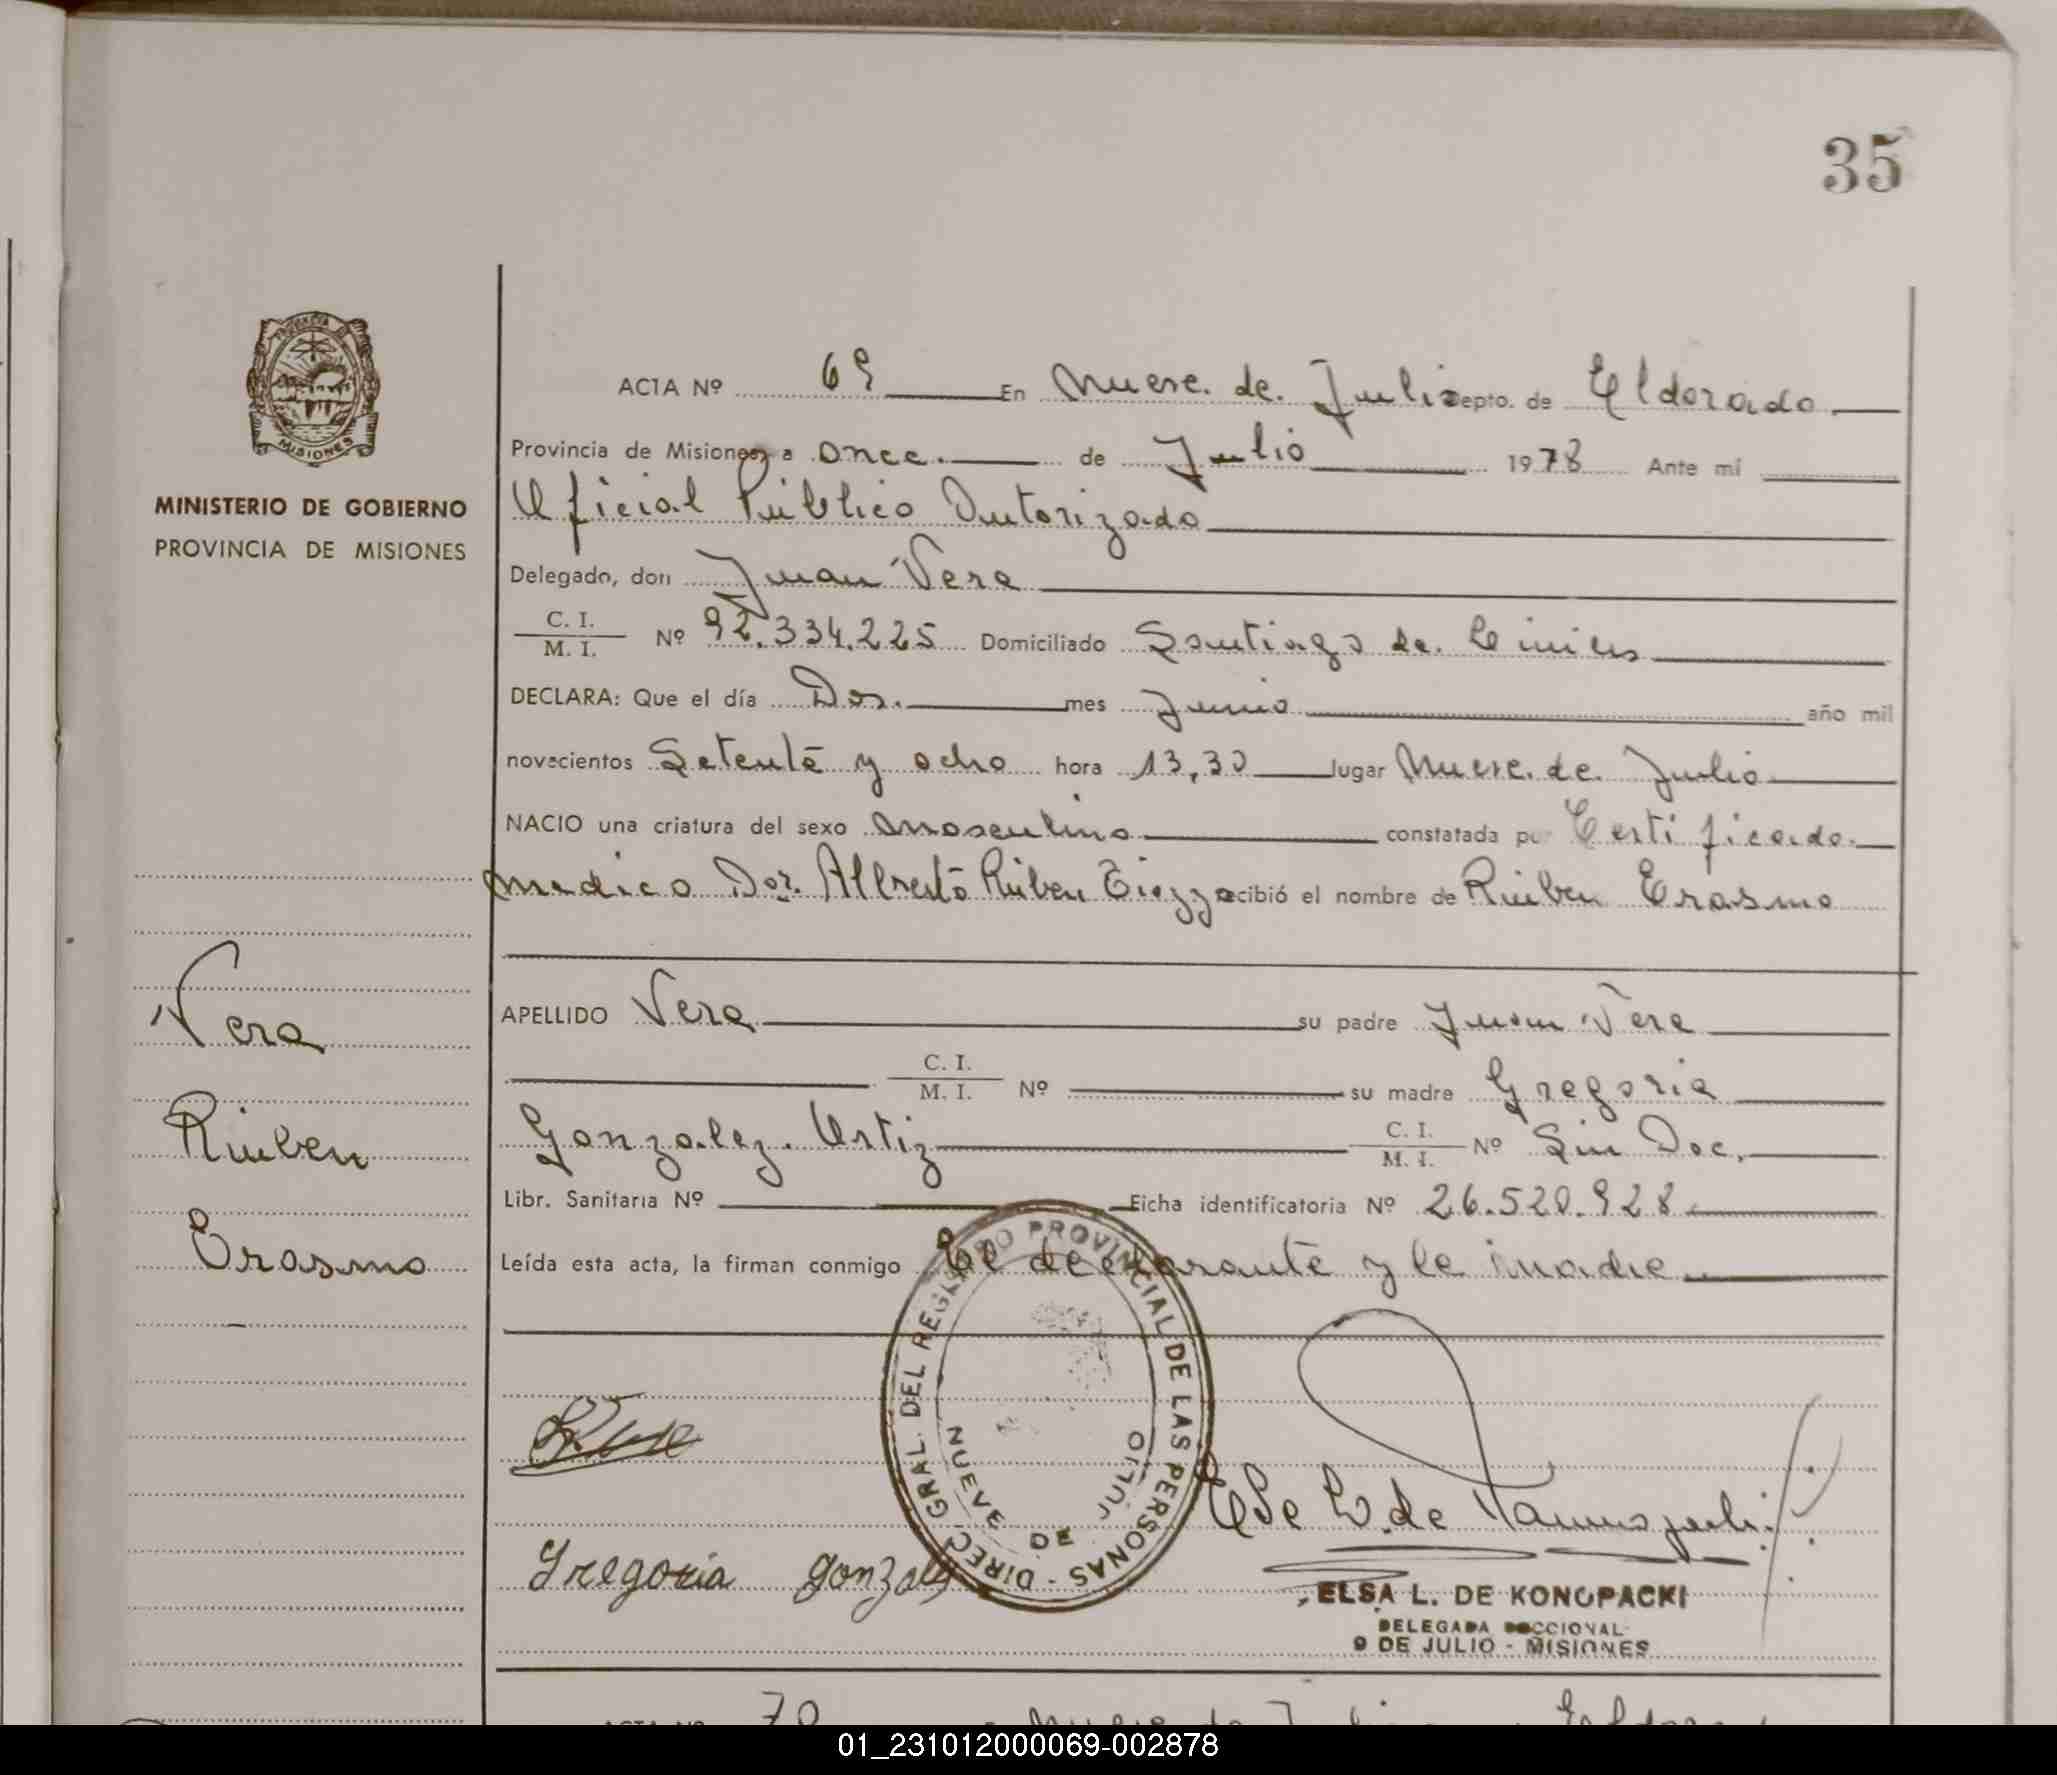 35
PROVINCIA DE
MISIONES
MINISTERIO DE GOBIERNO
PROVINCIA DE MISIONES
ACTA Nº 69 En Nueve de Julio Depto. de Eldorado
Provincia de Misiones, a once de Julio 1978 Ante mí
Oficial Público Autorizado
Delegado, don Juan Vera
C. I.
M. I. Nº 92.334.225 Domiciliado Santiago de Liniers
DECLARA: Que el día Dos mes Junio año mil
novecientos Setenta y ocho hora 13,30 lugar Nueve de Julio
NACIO una criatura del sexo masculino constatada por Certificado
medico Dor. Alberto Rúben recibió el nombre de Rúben Erasmo
APELLIDO Vera su padre Juan Vera
C. I.
M. I. Nº su madre Gregoria
Gonzalez Ortiz C. I.
M. I. Nº Sin Doc.
Libr. Sanitaria Nº Ficha identificatoria Nº 26.520.928
Leída esta acta, la firman conmigo El declarante y la madre
Vera
Rúben
Erasmo
DIREC. GRAL. DEL REGISTRO PROVINCIAL DE LAS PERSONAS -
NUEVE DE JULIO
Gregoria Gonzalez
ELSA L. DE KONOPACKI
DELEGADA SECCIONAL
9 DE JULIO - MISIONES
ACTA Nº 70 En Nueve de Julio Eldorado
01_231012000069-002878